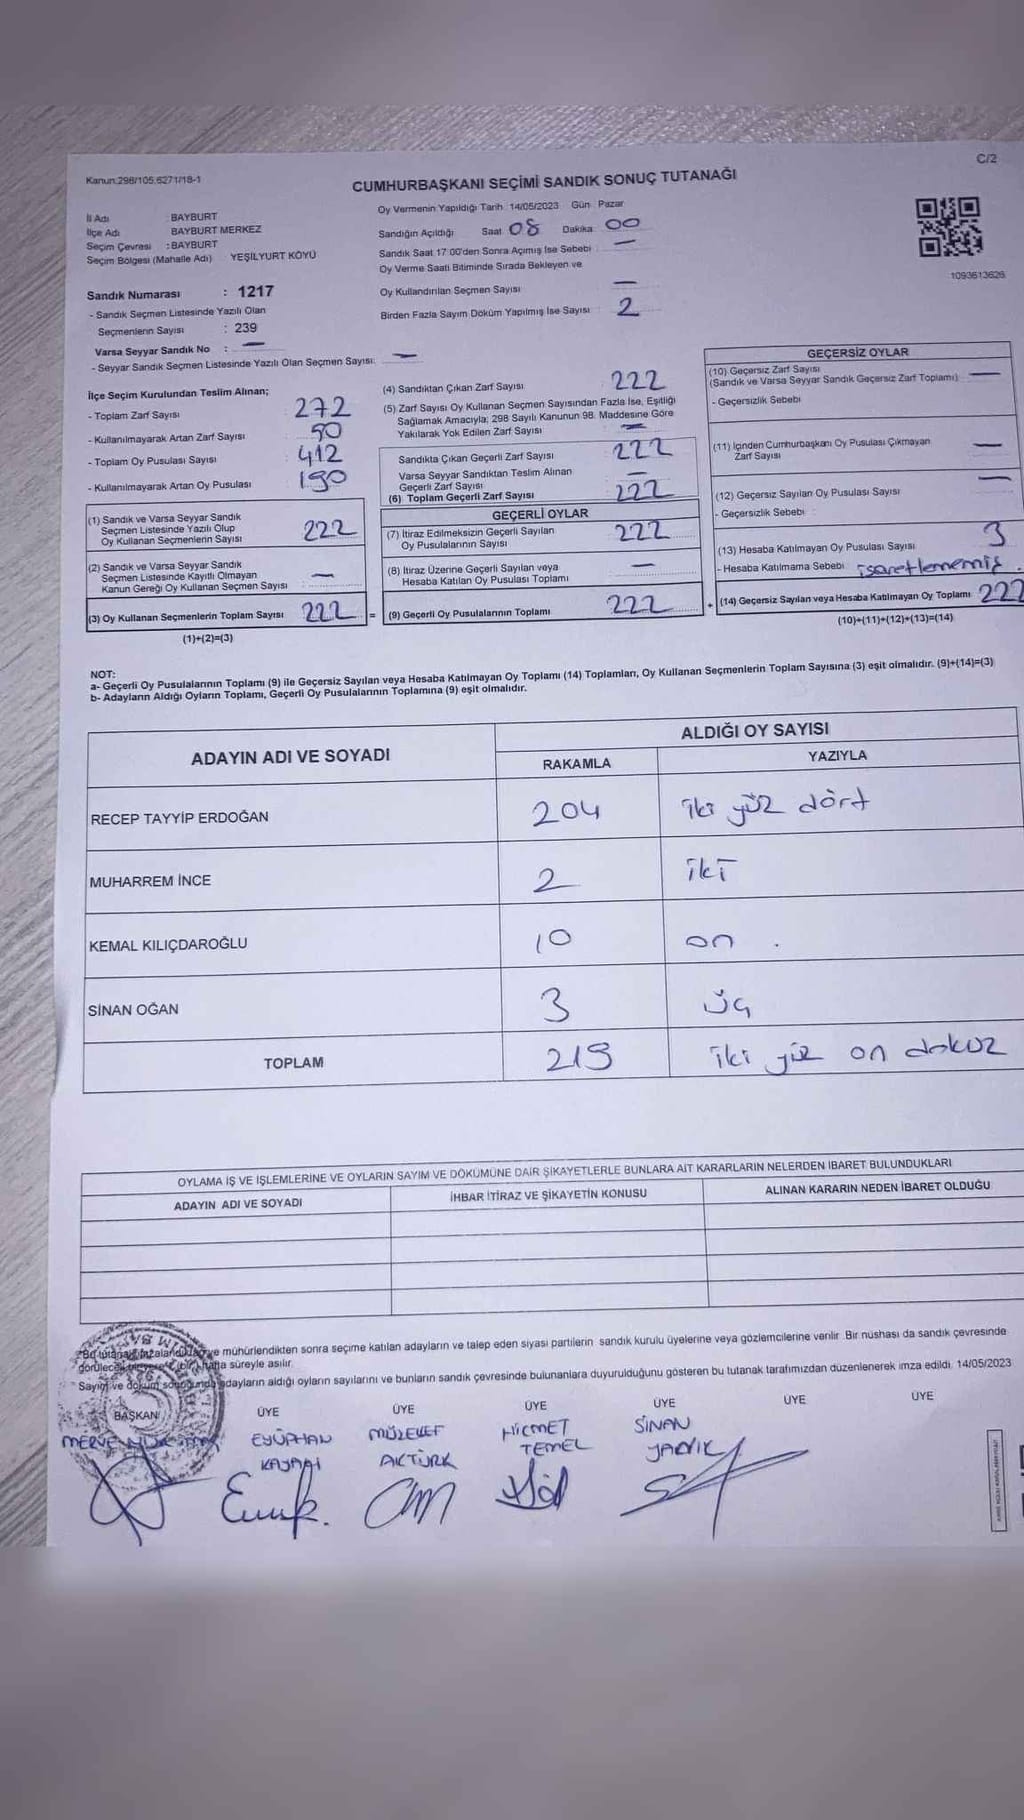 C/2
Kanun:298/105,6271/18-1
CUMHURBAŞKANI SEÇİMİ SANDIK SONUÇ TUTANAĞI
İl Adı BAYBURT
İlçe Adı BAYBURT MERKEZ
Seçim Çevresi : BAYBURT
Seçim Bölgesi (Mahalle Adı) YEŞİLYURT KÖYÜ
Oy Vermenin Yapıldığı Tarih 14/05/2023 Gün Pazar
Sandığın Açıldığı Saat 08 Dakika 00
Sandık Saat 17:00'den Sonra Açımış İse Sebebi —
Oy Verme Saati Bitiminde Sırada Bekleyen ve
Oy Kullandırılan Seçmen Sayısı —
Birden Fazla Sayım Döküm Yapılmış İse Sayısı 2
1093613626
Sandık Numarası : 1217
- Sandık Seçmen Listesinde Yazılı Olan
Seçmenlerin Sayısı : 239
Varsa Seyyar Sandık No : —
- Seyyar Sandık Seçmen Listesinde Yazılı Olan Seçmen Sayısı: —
İlçe Seçim Kurulundan Teslim Alınan;
- Toplam Zarf Sayısı 272
- Kullanılmayarak Artan Zarf Sayısı 50
- Toplam Oy Pusulası Sayısı 412
- Kullanılmayarak Artan Oy Pusulası 190
(1) Sandık ve Varsa Seyyar Sandık
Seçmen Listesinde Yazılı Olup
Oy Kullanan Seçmenlerin Sayısı 222
(2) Sandık ve Varsa Seyyar Sandık
Seçmen Listesinde Kayıtlı Olmayan
Kanun Gereği Oy Kullanan Seçmen Sayısı —
(3) Oy Kullanan Seçmenlerin Toplam Sayısı 222 =
(1)+(2)=(3)
(4) Sandıktan Çıkan Zarf Sayısı 222
(5) Zarf Sayısı Oy Kullanan Seçmen Sayısından Fazla İse, Eşitliği
Sağlamak Amacıyla; 298 Sayılı Kanunun 98. Maddesine Göre
Yakılarak Yok Edilen Zarf Sayısı —
Sandıkta Çıkan Geçerli Zarf Sayısı 222
Varsa Seyyar Sandıktan Teslim Alınan
Geçerli Zarf Sayısı —
(6) Toplam Geçerli Zarf Sayısı 222
GEÇERLİ OYLAR
(7) İtiraz Edilmeksizin Geçerli Sayılan
Oy Pusulalarının Sayısı 222
(8) İtiraz Üzerine Geçerli Sayılan veya
Hesaba Katılan Oy Pusulası Toplamı —
(9) Geçerli Oy Pusulalarının Toplamı 222 +
GEÇERSİZ OYLAR
(10) Geçersiz Zarf Sayısı
(Sandık ve Varsa Seyyar Sandık Geçersiz Zarf Toplamı) —
- Geçersizlik Sebebi
(11) İçinden Cumhurbaşkanı Oy Pusulası Çıkmayan
Zarf Sayısı —
(12) Geçersiz Sayılan Oy Pusulası Sayısı —
- Geçersizlik Sebebi :
(13) Hesaba Katılmayan Oy Pusulası Sayısı 3
- Hesaba Katılmama Sebebi işaretlememiş.
(14) Geçersiz Sayılan veya Hesaba Katılmayan Oy Toplamı 222
(10)+(11)+(12)+(13)=(14)
NOT:
a- Geçerli Oy Pusulalarının Toplamı (9) ile Geçersiz Sayılan veya Hesaba Katılmayan Oy Toplamı (14) Toplamları, Oy Kullanan Seçmenlerin Toplam Sayısına (3) eşit olmalıdır. (9)+(14)=(3)
b- Adayların Aldığı Oyların Toplamı, Geçerli Oy Pusulalarının Toplamına (9) eşit olmalıdır.
ADAYIN ADI VE SOYADI
ALDIĞI OY SAYISI
RAKAMLA YAZIYLA
RECEP TAYYİP ERDOĞAN 204 iki yüz dört
MUHARREM İNCE 2 iki
KEMAL KILIÇDAROĞLU 10 on .
SİNAN OĞAN 3 üç
TOPLAM 219 iki yüz on dokuz
OYLAMA İŞ VE İŞLEMLERİNE VE OYLARIN SAYIM VE DÖKÜMÜNE DAİR ŞİKAYETLERLE BUNLARA AİT KARARLARIN NELERDEN İBARET BULUNDUKLARI
ADAYIN ADI VE SOYADI İHBAR İTİRAZ VE ŞİKAYETİN KONUSU ALINAN KARARIN NEDEN İBARET OLDUĞU
ve mühürlendikten sonra seçime katılan adayların ve talep eden siyasi partilerin sandık kurulu üyelerine veya gözlemcilerine verilir. Bir nüshası da sandık çevresinde
hafta süreyle asılır.
Sayım ve döküm sonucunda adayların aldığı oyların sayılarını ve bunların sandık çevresinde bulunanlara duyurulduğunu gösteren bu tutanak tarafımızdan düzenlenerek imza edildi. 14/05/2023
BAŞKAN ÜYE ÜYE ÜYE ÜYE ÜYE ÜYE
MERVE EYÜPHAN MÜZEYYEF HİCMET SİNAN
AKTÜRK TEMEL